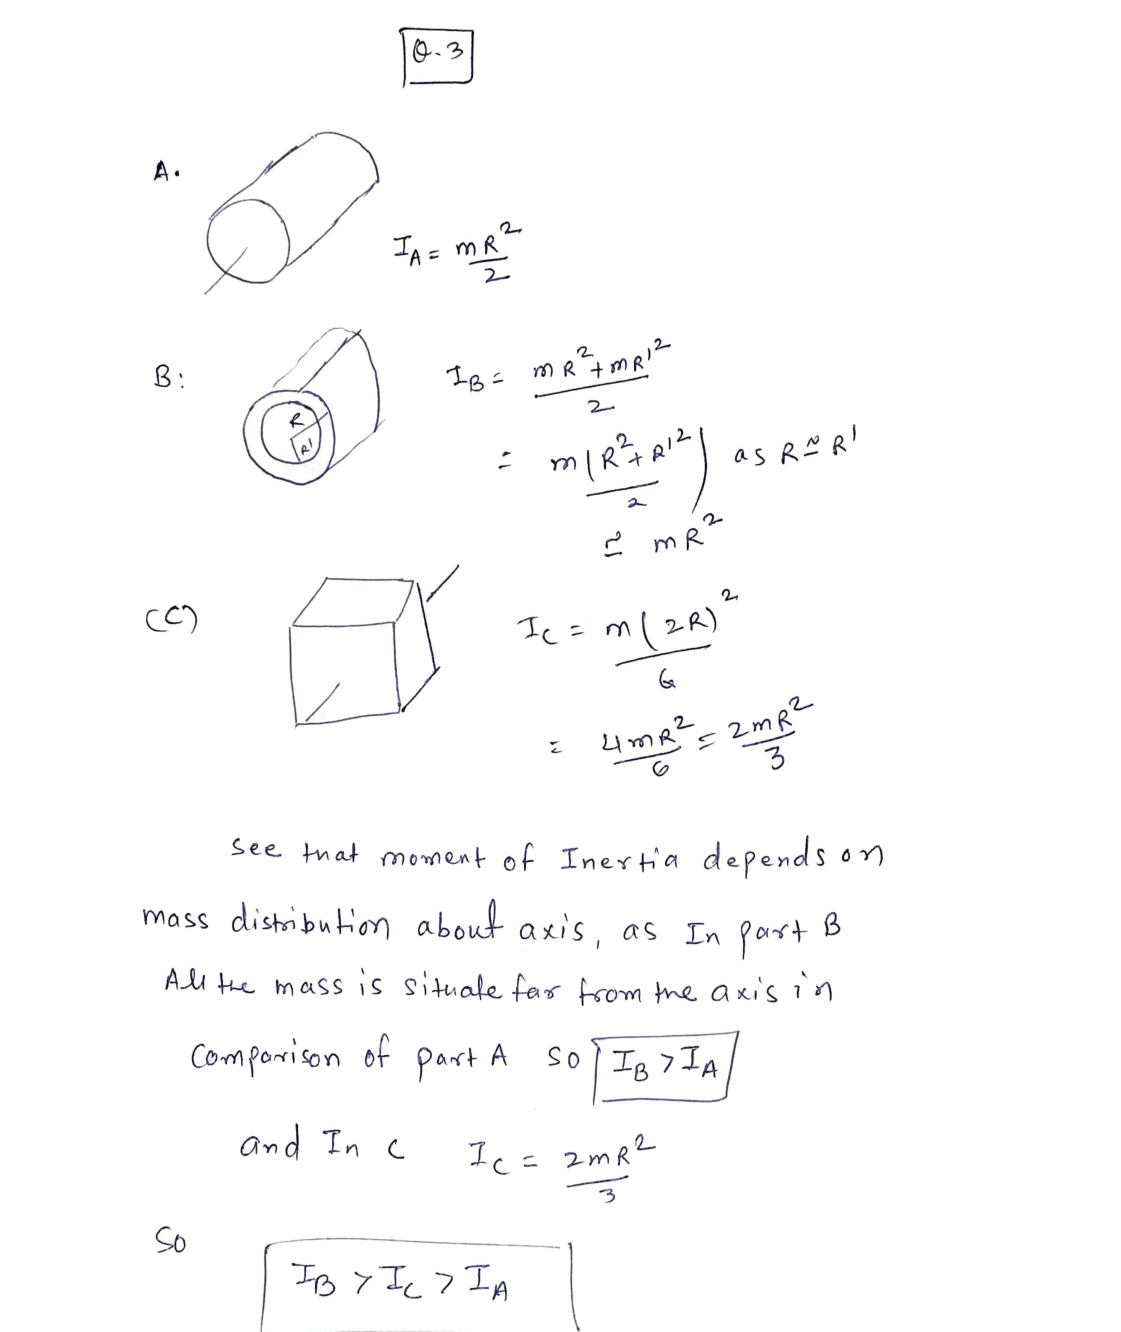 Q.3
A.
I_A = mR²/2
B:
R
R'
I_B = (mR² + mR'²)/2
= m(R² + R'²/2) as R ≃ R'
≃ mR²
(C)
I_C = m(2R)²/6
= 4mR²/6 = 2mR²/3
See that moment of Inertia depends on
mass distribution about axis, as In part B
All the mass is situate far from the axis in
Comparison of part A so I_B > I_A
and In C I_C = 2mR²/3
So
I_B > I_C > I_A